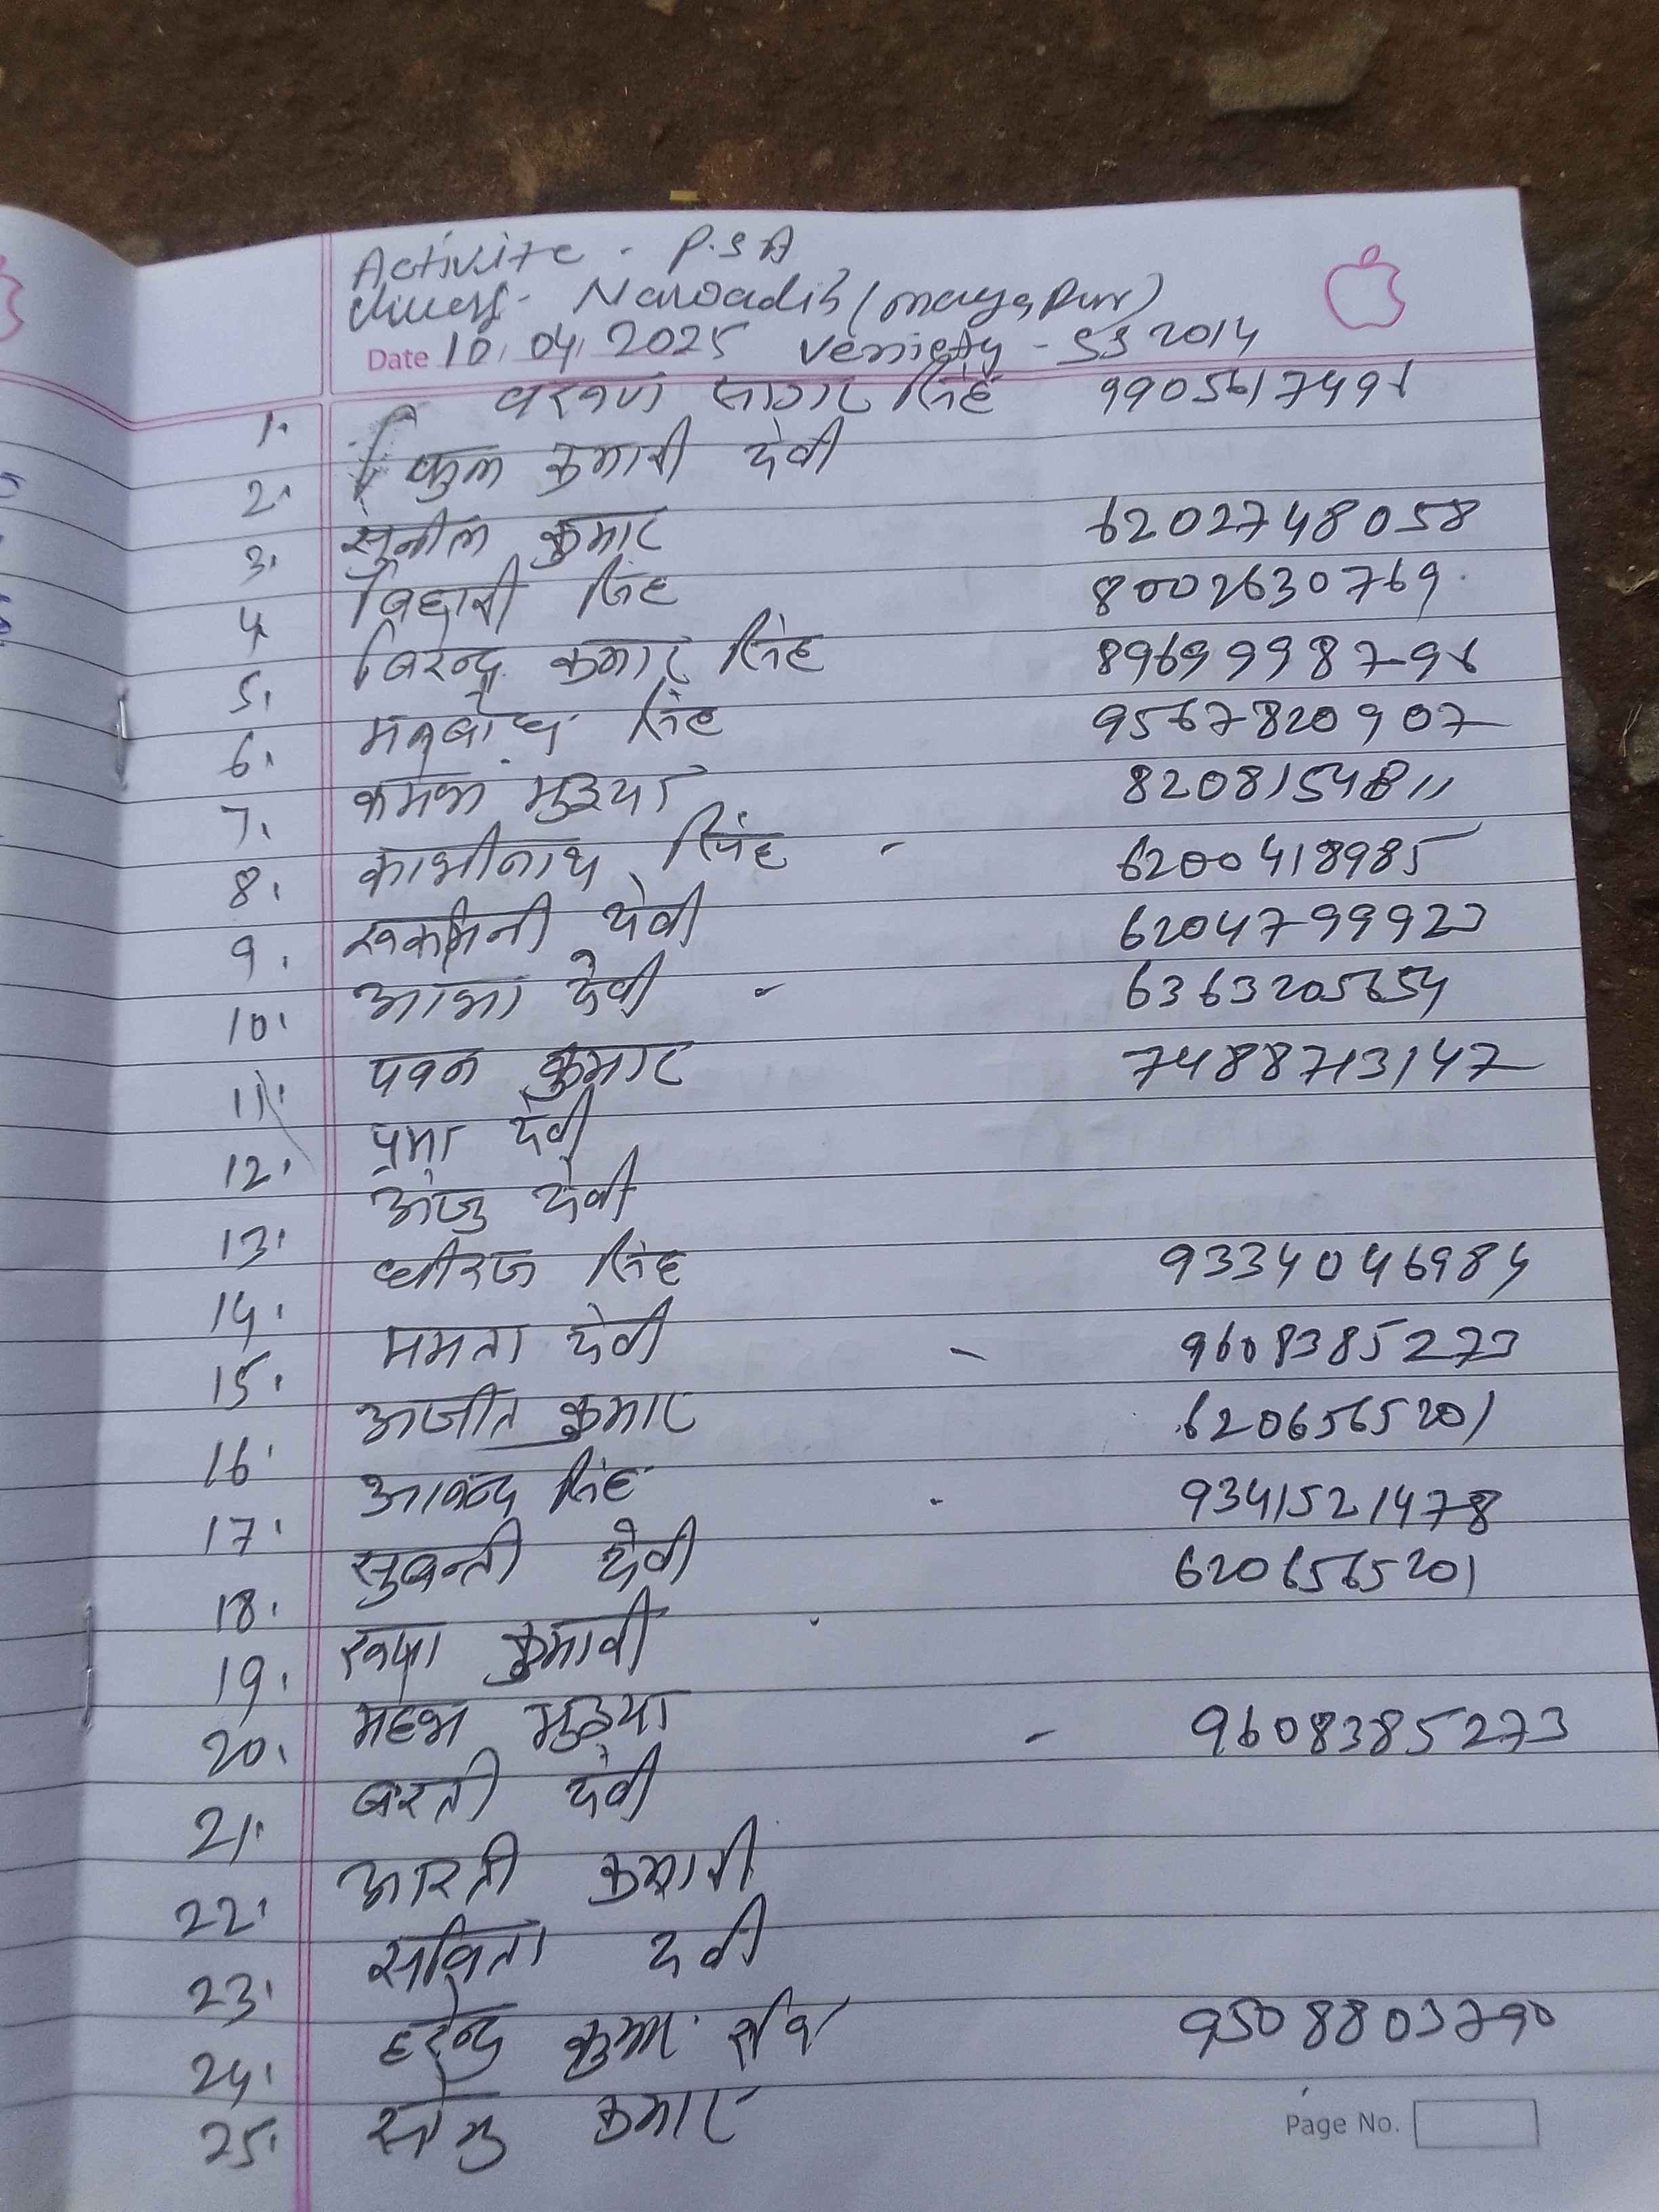 Activite - P.S.A
Narwadih (mayapur)
Date 10.04.2025 Veriety - SS 2014
1. वरुण सागर सिंह 9905617496
2. फुल कुमारी देवी
3. सुनील कुमार 6202748058
4. बिहारी सिंह 8002630769
5. बिरेन्द्र कुमार सिंह 8969998796
6. मनबोध सिंह 9567820907
7. कमेश भुइया 8208154811
8. काशीनाथ सिंह - 6200418985
9. रुकमिनी देवी 6204799923
10. आशा देवी - 6363205654
11. पवन कुमार 7488713147
12. प्रभा देवी
13. अंजु देवी
14. धीरज सिंह 9334046984
15. ममता देवी - 9608385273
16. अजीत कुमार 6206565201
17. आनन्द सिंह - 9341521478
18. सुबन्ती देवी 6206565201
19. रुपा कुमारी
20. महेश भुइया - 9608385273
21. बसंती देवी
22. आरती कुमारी
23. सबिता देवी
24. हरेन्द्र कुमार रवि 9508803790
25. सोनु कुमार
Page No.